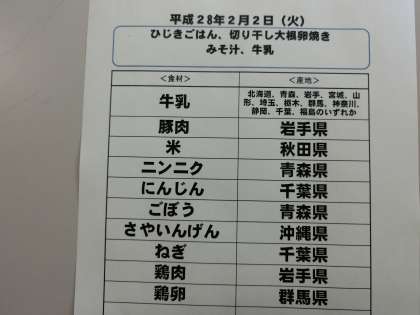 平成28年2月2日（火）
ひじきごはん、切り干し大根卵焼き
みそ汁、牛乳
＜食材＞ ＜産地＞
牛乳 北海道、青森、岩手、宮城、山
形、埼玉、栃木、群馬、神奈川、
静岡、千葉、福島のいずれか
豚肉 岩手県
米 秋田県
ニンニク 青森県
にんじん 千葉県
ごぼう 青森県
さやいんげん 沖縄県
ねぎ 千葉県
鶏肉 岩手県
鶏卵 群馬県